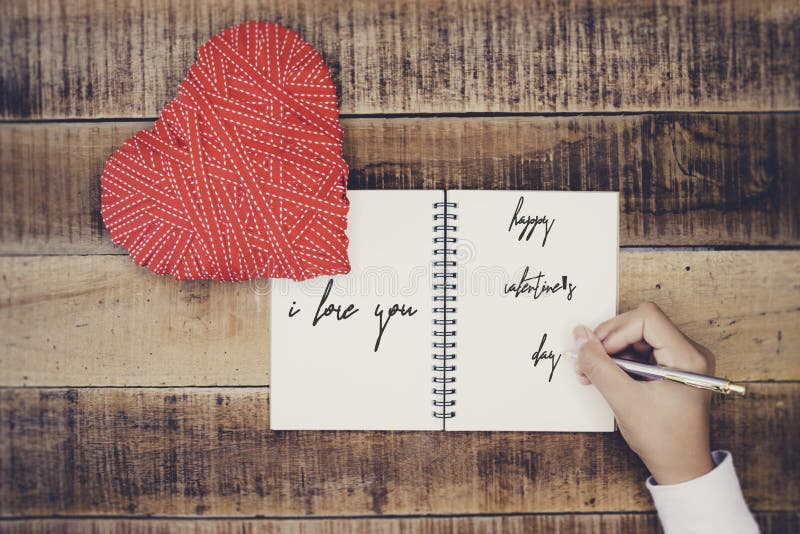 i love you
happy
valentine's
day
dreamstime